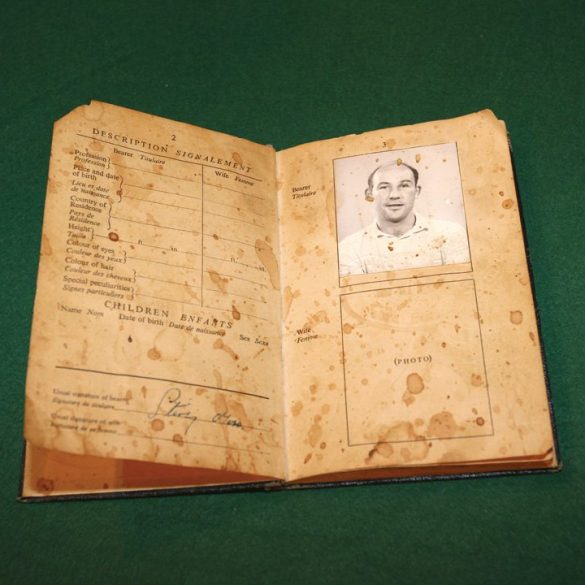 2
DESCRIPTION SIGNALEMENT
Bearer Titulaire
Wife Femme
Profession
Profession
Place and date
of birth
Lieu et date
de naissance
Country of
Residence
Pays de
Résidence
Height
Taille
ft. in.
Colour of eyes
Couleur des yeux
Colour of hair
Couleur des cheveux
Special peculiarities
Signes particuliers
CHILDREN ENFANTS
Name Nom Date of birth Date de naissance Sex Sexe
Usual signature of bearer
Signature du titulaire
Usual signature of wife
Signature de sa femme
3
Bearer
Titulaire
Wife
Femme
(PHOTO)